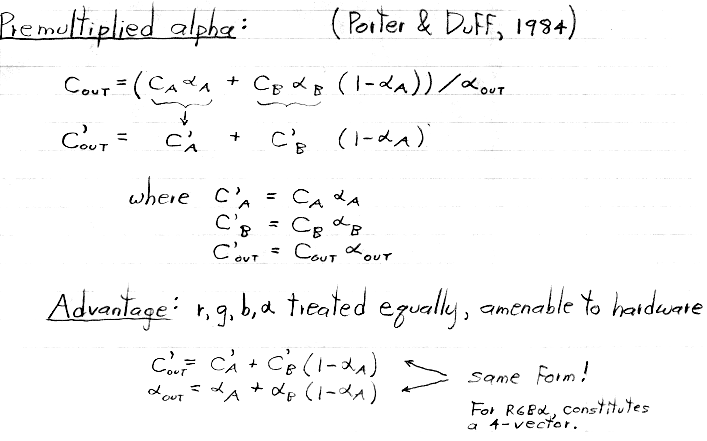 Premultiplied alpha: (Porter & Duff, 1984)
C_OUT = (C_A α_A + C_B α_B (1-α_A)) / α_OUT
C'_OUT = C'_A + C'_B (1-α_A)
where C'_A = C_A α_A
C'_B = C_B α_B
C'_OUT = C_OUT α_OUT
Advantage: r, g, b, α treated equally, amenable to hardware
C'_OUT = C'_A + C'_B (1-α_A)
α_OUT = α_A + α_B (1-α_A)
same form!
For RGBα, constitutes
a 4-vector.